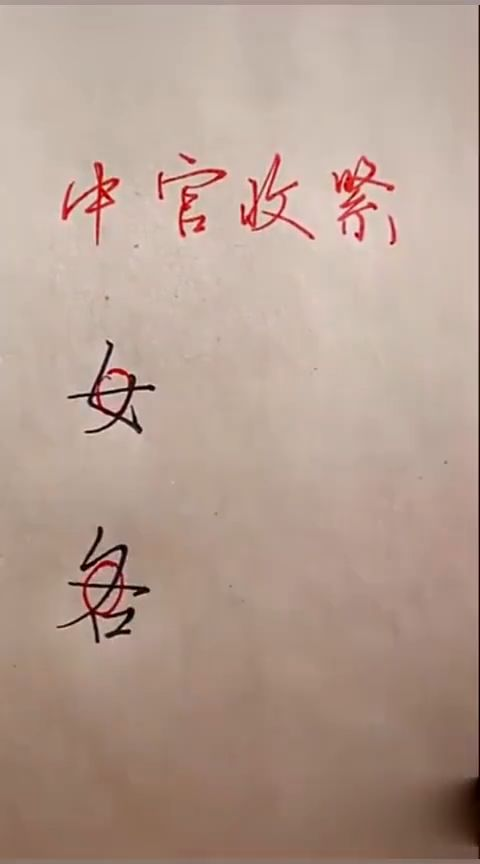 中宫收紧
女
各